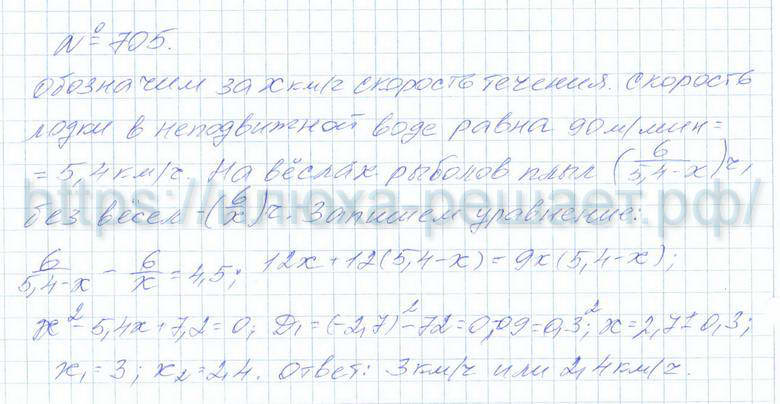 № 705.
Обозначим за x км/г скорость течения. Скорость
лодки в неподвижной воде равна 90 м/мин =
= 5,4 км/ч. На вёслах рыболов плыл (6/(5,4-x)) ч,
без вёсел - (6/x) ч. Запишем уравнение:
6/(5,4-x) - 6/x = 4,5; 12x + 12(5,4-x) = 9x(5,4-x);
x² - 5,4x + 7,2 = 0; D₁ = (-2,7)² - 72 = 0,09 = 0,3²; x = 2,7 ± 0,3;
x₁ = 3; x₂ = 2,4. Ответ: 3 км/ч или 2,4 км/ч.
https://илюха-решает.рф/